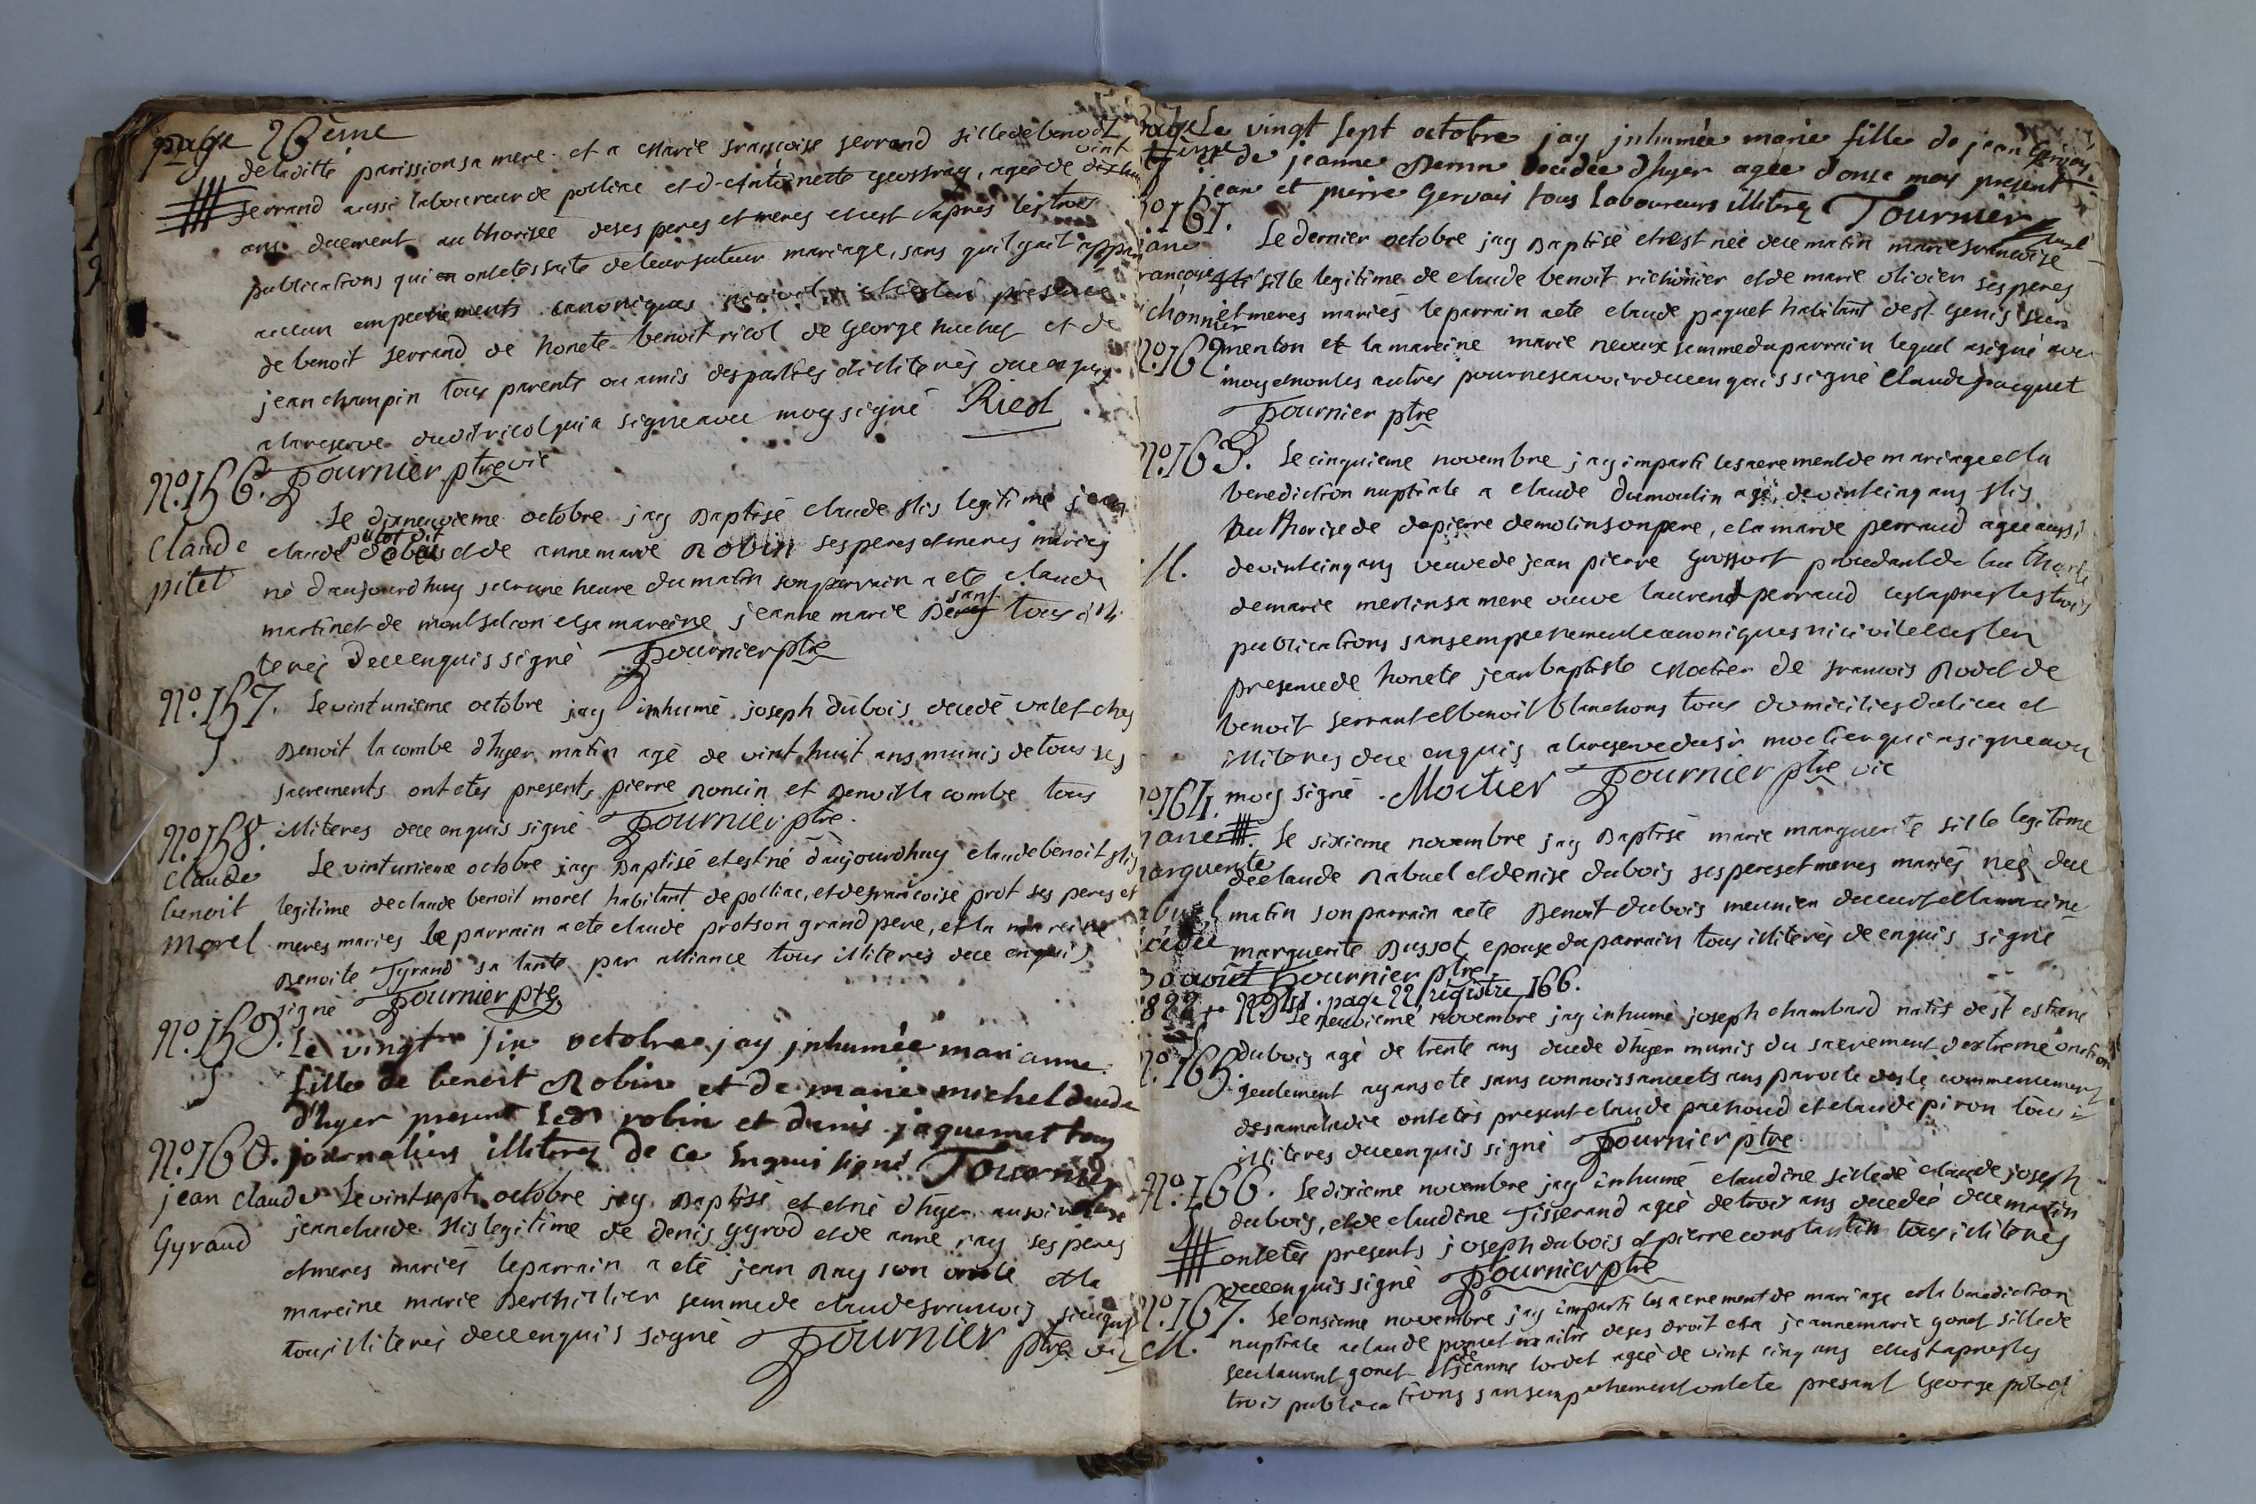 page 26ème
de laditte parission sa mere et a Marie francoise serrand fille de benoit
serrand aussi laboureur de polliac et d Antoinette geoffray, agée de vint
ans duement authorisée deses peres et meres et cest dapres les trois
publications qui ont etes faite de leur futeur mariage, sans quil y ait
aucun empechements canoniques ni civil et en presence
de benoit serrand de honete benoit ricol de George huchet et de
jean champin tous parents ou amis des parties et illiterés de ce enquis
a la reserve dudit ricol qui a signe avec moy signé Ricol
Fournier ptre vic
No. 156.
Claude
pitet
Le dixneuvieme octobre jay Baptisé claude fils legitime jean
claude pitet dit dubois et de anne marie Robin ses peres et meres mariés
né d aujourdhuy sur une heure du matin son parrain a ete claude
martinet de montfalcon et sa mareine jeanne marie tous illi
terés de ce enquis signé Fournier ptre
No. 157.
Le vint unieme octobre jay inhumé joseph dubois decedé valet ches
Benoit lacombe d'hyer matin agé de vint huit ans munis de tous ses
sacrements ont etes presents pierre Roncin et Benoit la combe tous
illiteres de ce enquis signé Fournier ptre.
No. 158.
Claude
benoit
morel
Le vint unieme octobre jay Baptisé et est né daujourdhuy claude benoit fils
legitime de claude benoit morel habitant de polliac, et de francoise prot ses peres et
meres mariés le parrain a ete claude prot son grand pere, et la mareine
Benoite Tyrand sa tante par alliance tous illiteres de ce enquis
signé Fournier ptre
No. 159.
Le vingt six octobre jay inhumée marianne
fille de benoit Robin et de marie michel decedee
d'hyer present led robin et denis jaquemet tous
journaliers illiteres de ce enquis signé Fournier
No. 160.
jean Claude
Gyraud
Le vint sept octobre jay Baptisé et est né d'hyer au soir
jean claude fils legitime de denis gyrod et de anne ray ses peres
et meres mariés le parrain a eté jean Ray son oncle et la
mareine marie Berthillier femme de claude francois
tous illiterés de ce enquis signé Fournier ptre vic
Le vingt sept octobre jay inhumée marie fille de jean Gervais
et de jeanne decedée d'hyer agée donse mois present
jean et pierre Gervais tous laboureurs illiteres Fournier
No. 161.
Le dernier octobre jay Baptisé et est née de ce matin marie francoise
fille legitime de claude benoit richonier et de marie olivier ses peres
et meres mariés le parrain a ete claude paquet habitant de st genis sur
No. 162
menton et la mareine marie neveux femme du parrain lequel a signé avec
moy et non les autres pour ne scavoir de ce enquis signé Claude pacquet
Fournier ptre
No. 163.
M.
Le cinquieme novembre jay imparti le sacrement de mariage et la
benediction nuptiale a claude dumoulin agé de vint cinq ans fils
authorise de de pierre demolin son pere, et a marie perraud agee aussi
de vint cinq ans veuve de jean pierre procedant de
de marie merlin sa mere veuve laurent perraud et cest apres les trois
publications sans empechement canoniques ni civil et cest en
presence de honete jean baptiste Moctier de francois Rodel de
benoit serrant et benoit blanchons tous domicilies du lieu et
illiteres de ce enquis a la reserve du sr moctier qui a signe avec
moy signé Moctier Fournier ptre vic
No. 164.
Le sixieme novembre jay Baptisé marie marguerite fille legitime
de claude Rabuel et denise dubois ses peres et meres mariés née de ce
matin son parrain a ete Benoit dubois meunier de et la mareine
marguerite Bussot epouse du parrain tous illiterés de enquis signé
Fournier ptre
30 aoüt
1822 No 211. page 22, régistre 166.
No. 165.
Le neuvieme novembre jay inhumé joseph chambard natif de st estiene
dubois agé de trente ans decede d'hyer munis du sacrement dextreme onction
seulement ayans eté sans connoissance et sans parole des le commencement
de sa maladie ont etés present claude pachoud et claude piron tous
illiteres de ce enquis signé Fournier ptre
No. 166.
Le dixieme novembre jay inhumé claudine fille de claude joseph
dubois, et de claudine Tisserand agée de trois ans decedée de ce matin
ont etes presents joseph dubois et pierre constantin tous illiterés
de ce enquis signé Fournier ptre
No. 167.
M.
Le onsieme novembre jay imparti le sacrement de mariage et la benediction
nuptiale a claude maitre de ses droit et a jeanne marie gonet fille de
feu laurent gonet et de jeanne tordet agée de vint cinq ans et cest apres les
trois publications sans empechement ont ete present George